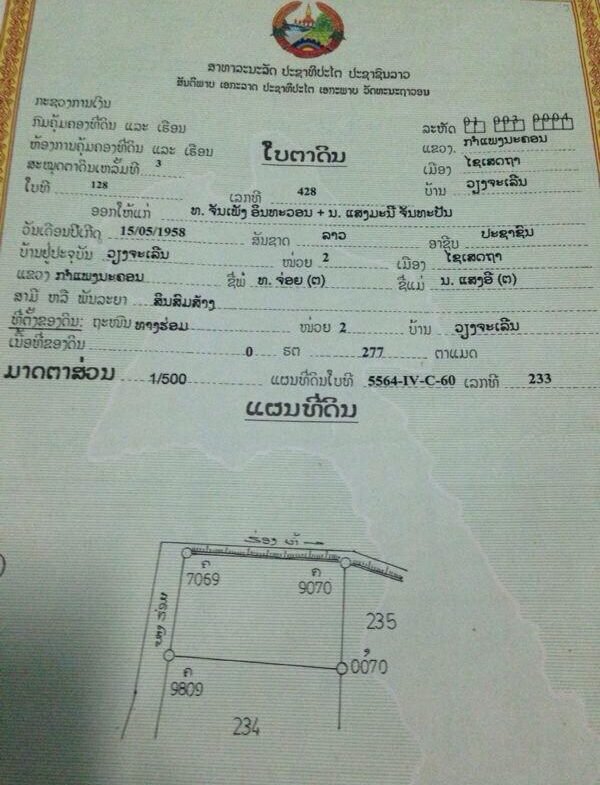 ສາທາລະນະລັດ ປະຊາທິປະໄຕ ປະຊາຊົນລາວ
ສັນຕິພາບ ເອກະລາດ ປະຊາທິປະໄຕ ເອກະພາບ ວັດທະນະຖາວອນ
ກະຊວງການເງິນ
ກົມຄຸ້ມຄອງທີ່ດິນ ແລະ ເຮືອນ ລະຫັດ 01 003 0004
ຫ້ອງການຄຸ້ມຄອງທີ່ດິນ ແລະ ເຮືອນ ໃບຕາດິນ ແຂວງ. ກຳແພງນະຄອນ
ສະໝຸດຕາດິນເຫລັ້ມທີ 3 ເມືອງ ໄຊເສດຖາ
ໃບທີ 128 ເລກທີ 428 ບ້ານ ວຽງຈະເລີນ
ອອກໃຫ້ແກ່ ທ. ຈັນເພັງ ອິນທະວອນ + ນ. ແສງມະນີ ຈັນທະປັນ
ວັນເດືອນປີເກີດ 15/05/1958 ສັນຊາດ ລາວ ອາຊີບ ປະຊາຊົນ
ບ້ານຢູ່ປະຈຸບັນ ວຽງຈະເລີນ ໜ່ວຍ 2 ເມືອງ ໄຊເສດຖາ
ແຂວງ ກຳແພງນະຄອນ ຊື່ພໍ່ ທ. ຈ່ອຍ (ຕ) ຊື່ແມ່ ນ. ແສງອີ (ຕ)
ສາມີ ຫລື ພັນລະຍາ ສິນສົມສ້າງ
ທີ່ຕັ້ງຂອງດິນ: ຖະໜົນ ທາງຮ່ອມ ໜ່ວຍ 2 ບ້ານ ວຽງຈະເລີນ
ເນື້ອທີ່ຂອງດິນ 0 ຮຕ 277 ຕາແມດ
ມາດຕາສ່ວນ 1/500 ແຜນທີ່ດິນໃບທີ 5564-IV-C-60 ເລກທີ 233
ແຜນທີ່ດິນ
ຮ່ອງ ນ້ຳ
ຄ 7069
ຄ 9070
235
ທາງ ຮ່ອມ
0070
ຄ 9809
234